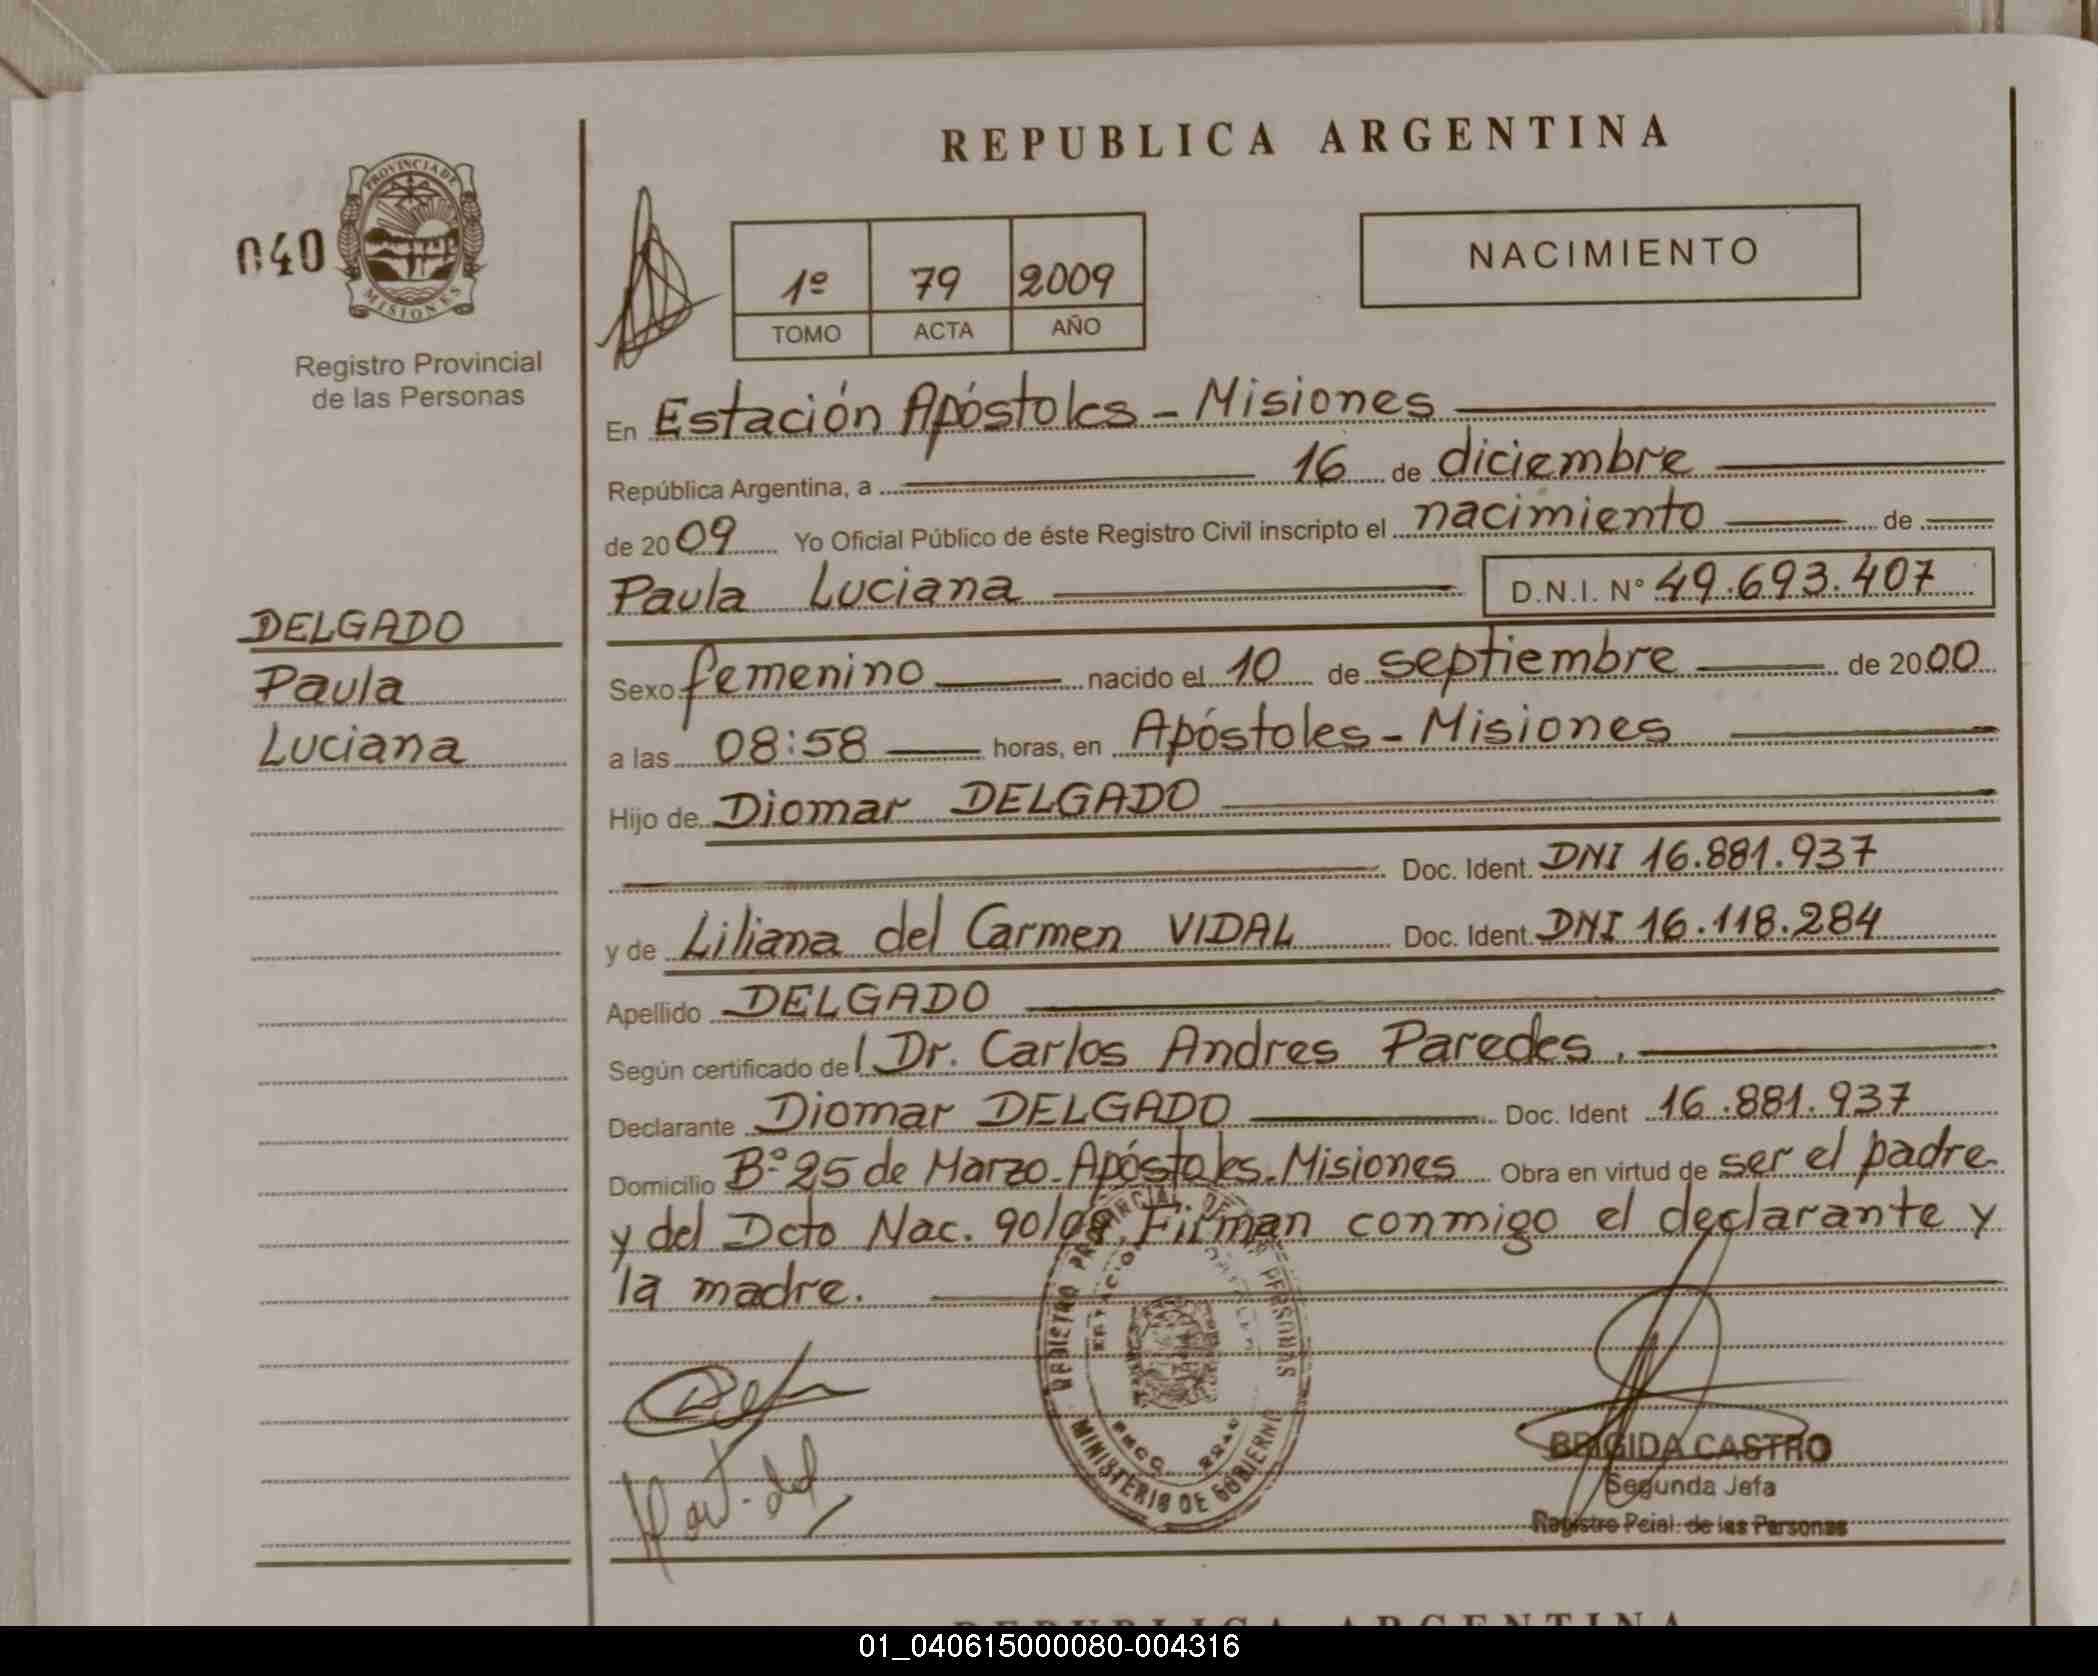 REPUBLICA ARGENTINA
040
PROVINCIA DE
MISIONES
Registro Provincial
de las Personas
1º 79 2009
TOMO ACTA AÑO
NACIMIENTO
En Estación Apóstoles - Misiones
República Argentina, a 16 de diciembre
de 2009 Yo Oficial Público de éste Registro Civil inscripto el nacimiento de
Paula Luciana D.N.I. Nº 49.693.407
DELGADO
Paula
Luciana
Sexo femenino nacido el 10 de septiembre de 2000
a las 08:58 horas, en Apóstoles - Misiones
Hijo de Diomar DELGADO
Doc. Ident. DNI 16.881.937
y de Liliana del Carmen VIDAL Doc. Ident. DNI 16.118.284
Apellido DELGADO
Según certificado del Dr. Carlos Andres Paredes.
Declarante Diomar DELGADO Doc. Ident 16.881.937
Domicilio Bº 25 de Marzo - Apóstoles - Misiones Obra en virtud de ser el padre
y del Dcto Nac. 90/09. Firman conmigo el declarante y
la madre.
REGISTRO PROVINCIAL DE LAS PERSONAS
MINISTERIO DE GOBIERNO
BRIGIDA CASTRO
Segunda Jefa
Registro Pcial. de las Personas
REPUBLICA ARGENTINA
01_040615000080-004316